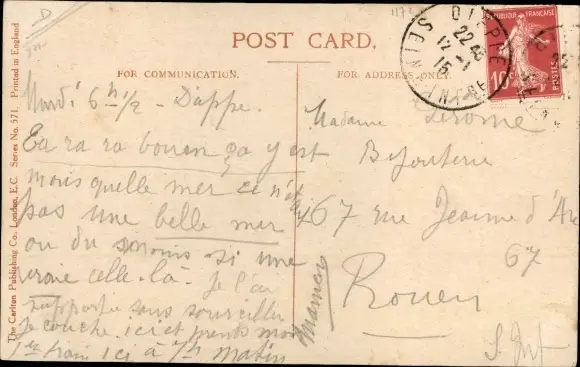 D
1172
POST CARD.
FOR COMMUNICATION.
FOR ADDRESS ONLY.
The Carlton Publishing Co. London, E.C. Series No. 571. Printed in England
RÉPUBLIQUE FRANÇAISE
10
POSTES
DIEPPE
22 35
12 - 1
15
SEINE INFRE
Mardi 6h 1/2 - Dieppe.
Ça ra ra bouen ça y est
mais quelle mer ce n'est
pas une belle mer
ou du moins si une
vraie celle-là. Je l'ai
supporté sans sourciller
Je couche ici et prends mon
1er train ici à 7h matin
Maman
Madame Jérome
Bijouterie
67 rue Jeanne d'Arc
67
Rouen
S. Inf